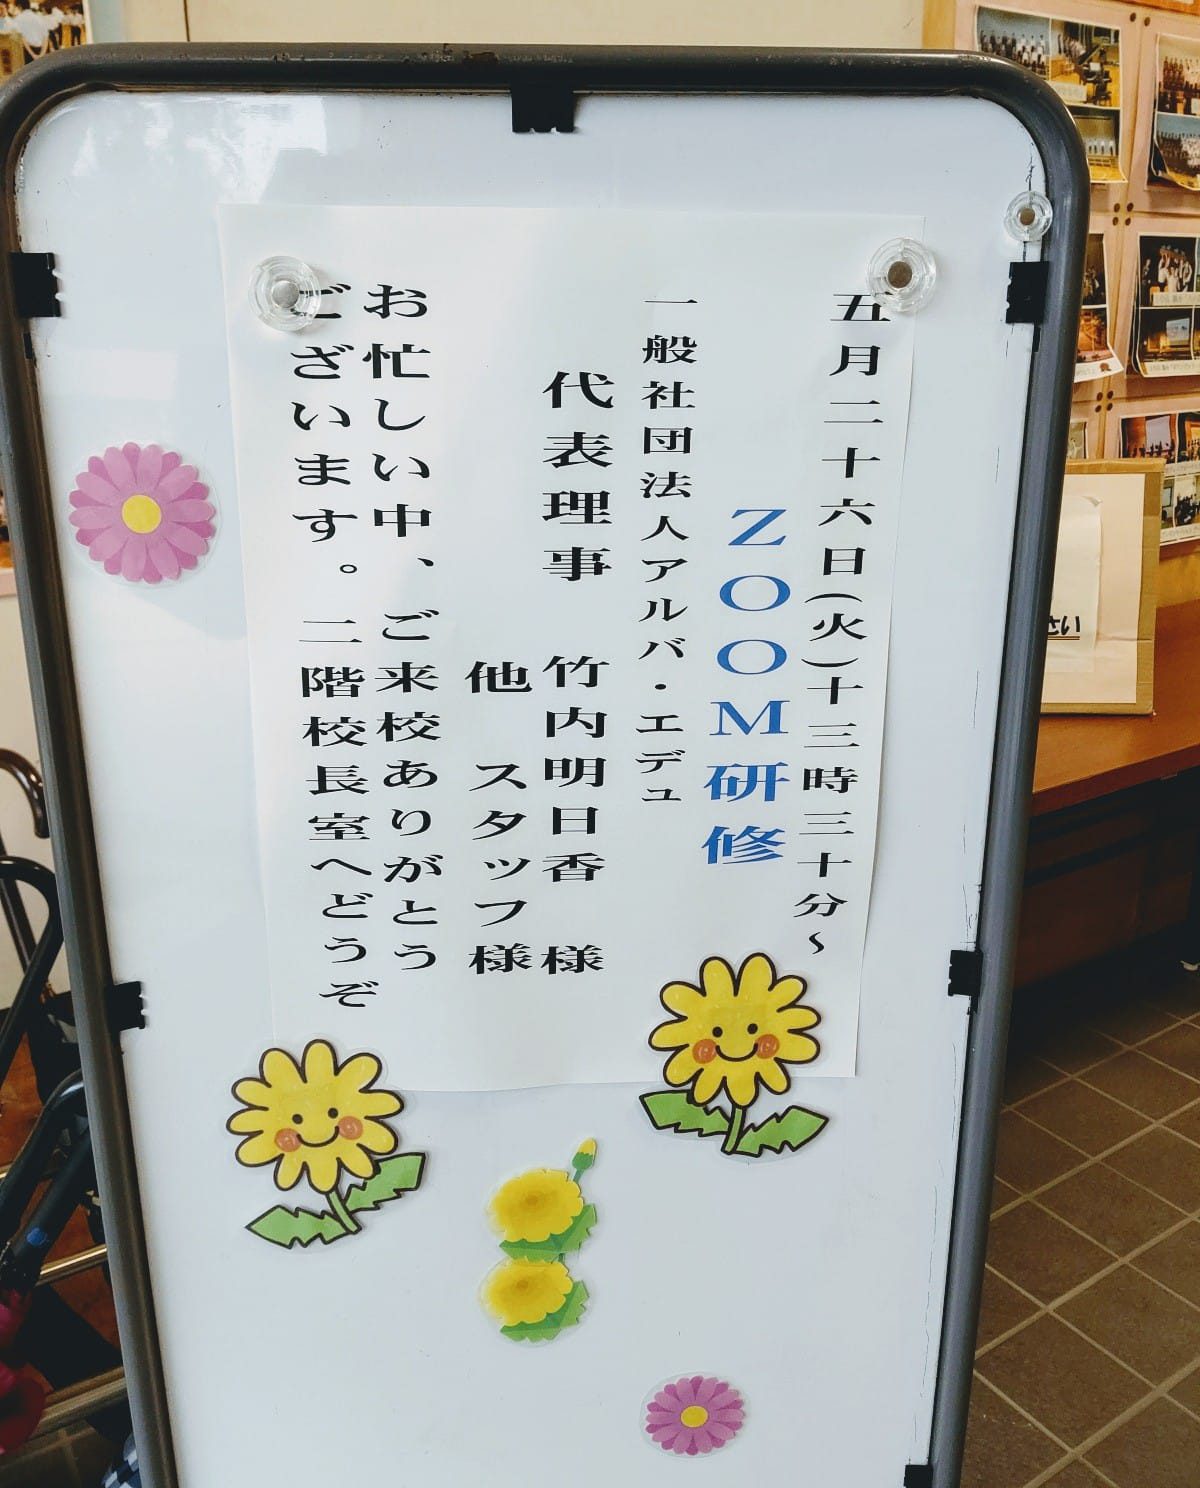 五月二十六日(火)十三時三十分~
ZOOM研修
一般社団法人アルバ・エデュ
代表理事 竹内明日香 様
他 スタッフ様
お忙しい中、ご来校ありがとう
ございます。二階校長室へどうぞ
さい